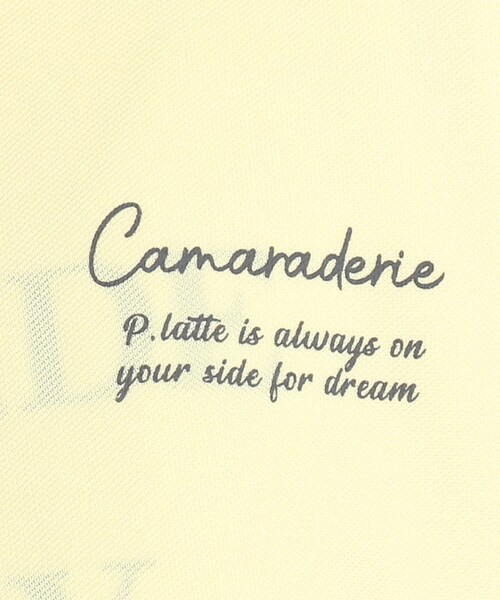 Camaraderie
P.latte is always on
your side for dream